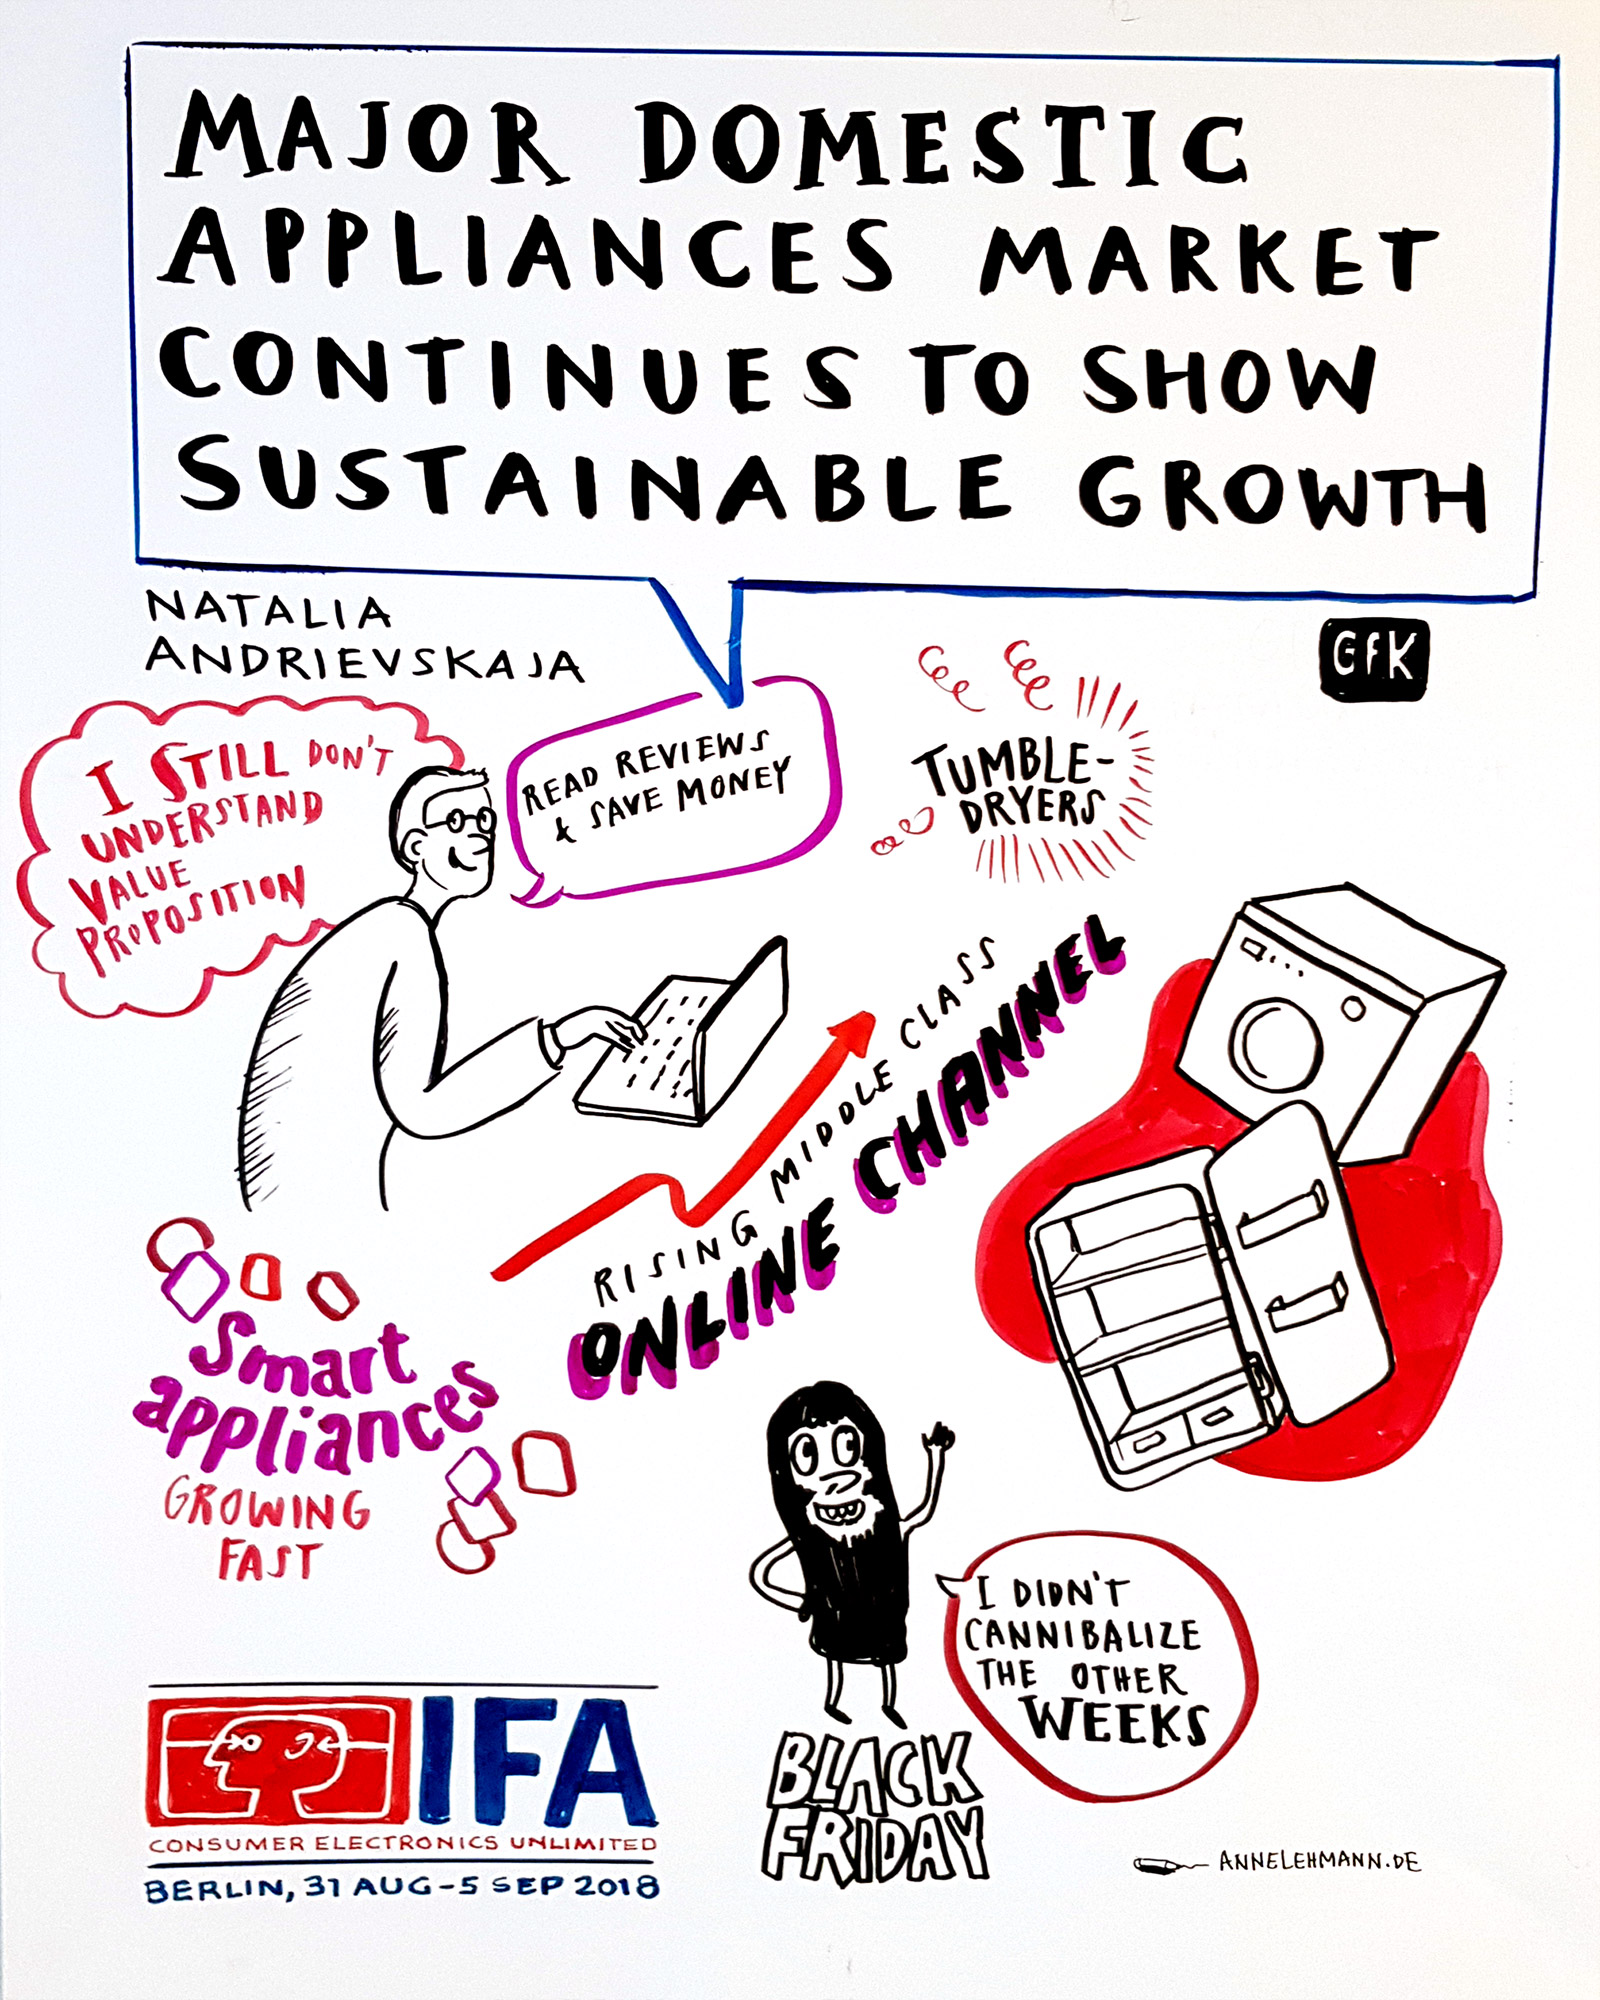 MAJOR DOMESTIC
APPLIANCES MARKET
CONTINUES TO SHOW
SUSTAINABLE GROWTH
NATALIA
ANDRIEVSKAJA
GfK
I STILL DON'T
UNDERSTAND
VALUE
PROPOSITION
READ REVIEWS
& SAVE MONEY
TUMBLE-
DRYERS
RISING MIDDLE CLASS
ONLINE CHANNEL
Smart
appliances
GROWING
FAST
I DIDN'T
CANNIBALIZE
THE OTHER
WEEKS
BLACK
FRIDAY
IFA
CONSUMER ELECTRONICS UNLIMITED
BERLIN, 31 AUG - 5 SEP 2018
ANNELEHMANN.DE